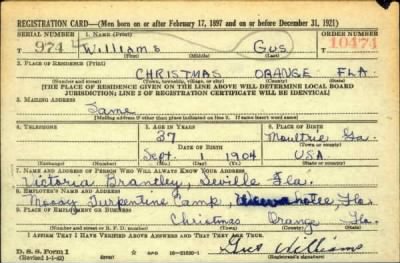 REGISTRATION CARD—(Men born on or after February 17, 1897 and on or before December 31, 1921)
SERIAL NUMBER 1. NAME (Print) ORDER NUMBER
T 974 Williams Gus 10474
(First) (Middle) (Last)
2. PLACE OF RESIDENCE (Print)
CHRISTMAS ORANGE FLA.
(Number and street) (Town, township, village, or city) (County) (State)
[THE PLACE OF RESIDENCE GIVEN ON THE LINE ABOVE WILL DETERMINE LOCAL BOARD
JURISDICTION; LINE 2 OF REGISTRATION CERTIFICATE WILL BE IDENTICAL]
3. MAILING ADDRESS
Same
[Mailing address if other than place indicated on line 2. If same insert word same]
4. TELEPHONE 5. AGE IN YEARS 6. PLACE OF BIRTH
37 Moultrie Ga.
DATE OF BIRTH (Town or county)
Sept. 1 1904 USA
(Exchange) (Number) (Mo.) (Day) (Yr.) (State or country)
7. NAME AND ADDRESS OF PERSON WHO WILL ALWAYS KNOW YOUR ADDRESS
Victoria Brantley, Seville Fla.
8. EMPLOYER'S NAME AND ADDRESS
Moody Turpentine Camp, Fla.
9. PLACE OF EMPLOYMENT OR BUSINESS
Christmas Orange Fla.
(Number and street or R. F. D. number) (Town) (County) (State)
I AFFIRM THAT I HAVE VERIFIED ABOVE ANSWERS AND THAT THEY ARE TRUE.
D. S. S. Form 1
(Revised 1-1-42) (over) 16—21630-1 Gus Williams